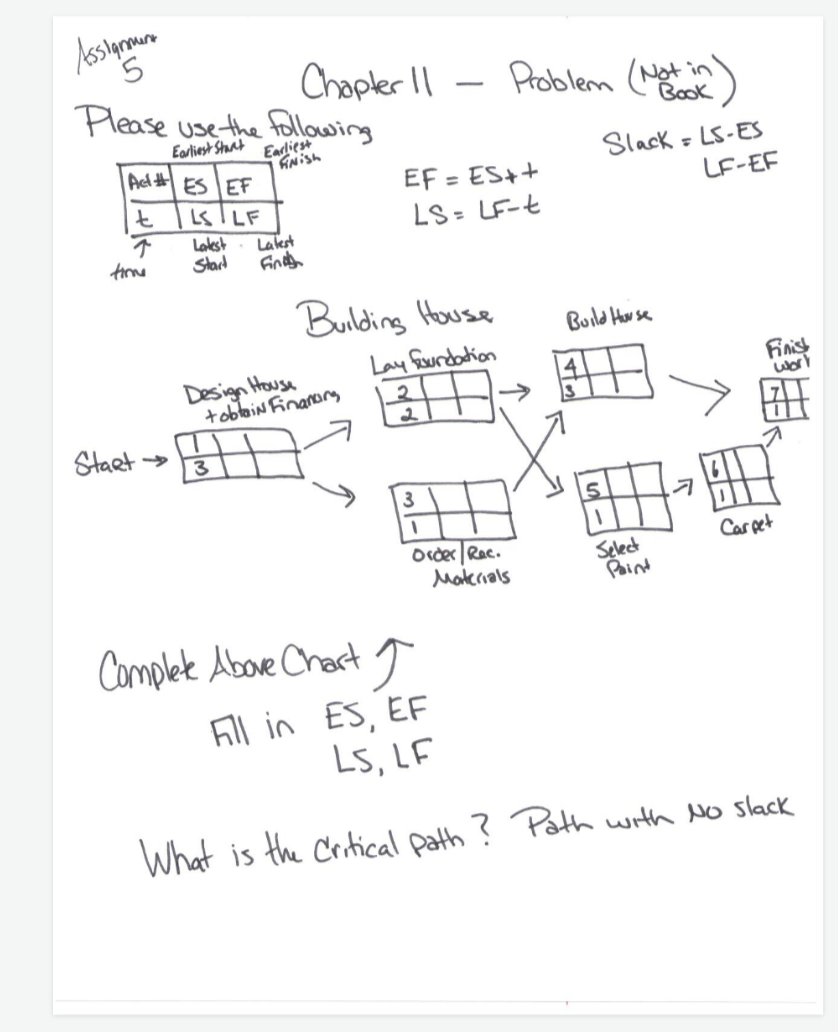 Assignment
5
Chapter 11 — Problem (Not in
Book)
Please use the following
Earliest Start Earliest
Finish
Act# ES EF
t LS LF
↑ Latest Latest
time Start Finish
EF = ES+t
LS = LF-t
Slack = LS-ES
LF-EF
Building House
Design House
+ obtain Financing
Start →
1
3
Lay foundation
2
2
3
1
Order/Rec.
Materials
Build House
4
3
5
1
Select
Paint
6
1
Carpet
Finish
Work
7
1
Complete Above Chart ↑
Fill in ES, EF
LS, LF
What is the critical path? Path with No slack